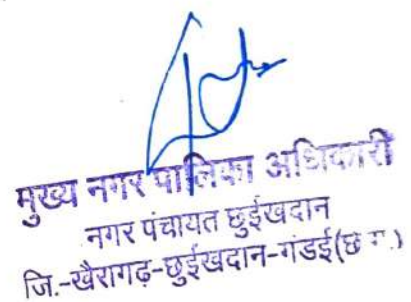 मुख्य नगर पालिका अधिकारी
नगर पंचायत छुईखदान
जि.-खैरागढ़-छुईखदान-गंडई(छ.ग.)